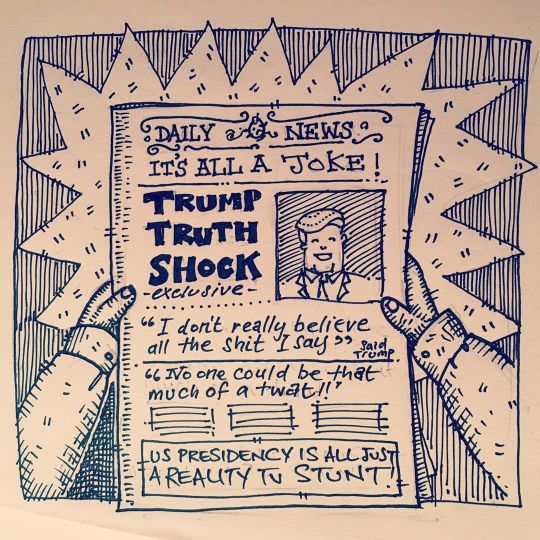 DAILY NEWS
IT'S ALL A JOKE!
TRUMP
TRUTH
SHOCK
-exclusive-
"I don't really believe
all the shit I say" said
Trump.
"No one could be that
much of a twat!!"
US PRESIDENCY IS ALL JUST
A REALITY TV STUNT!